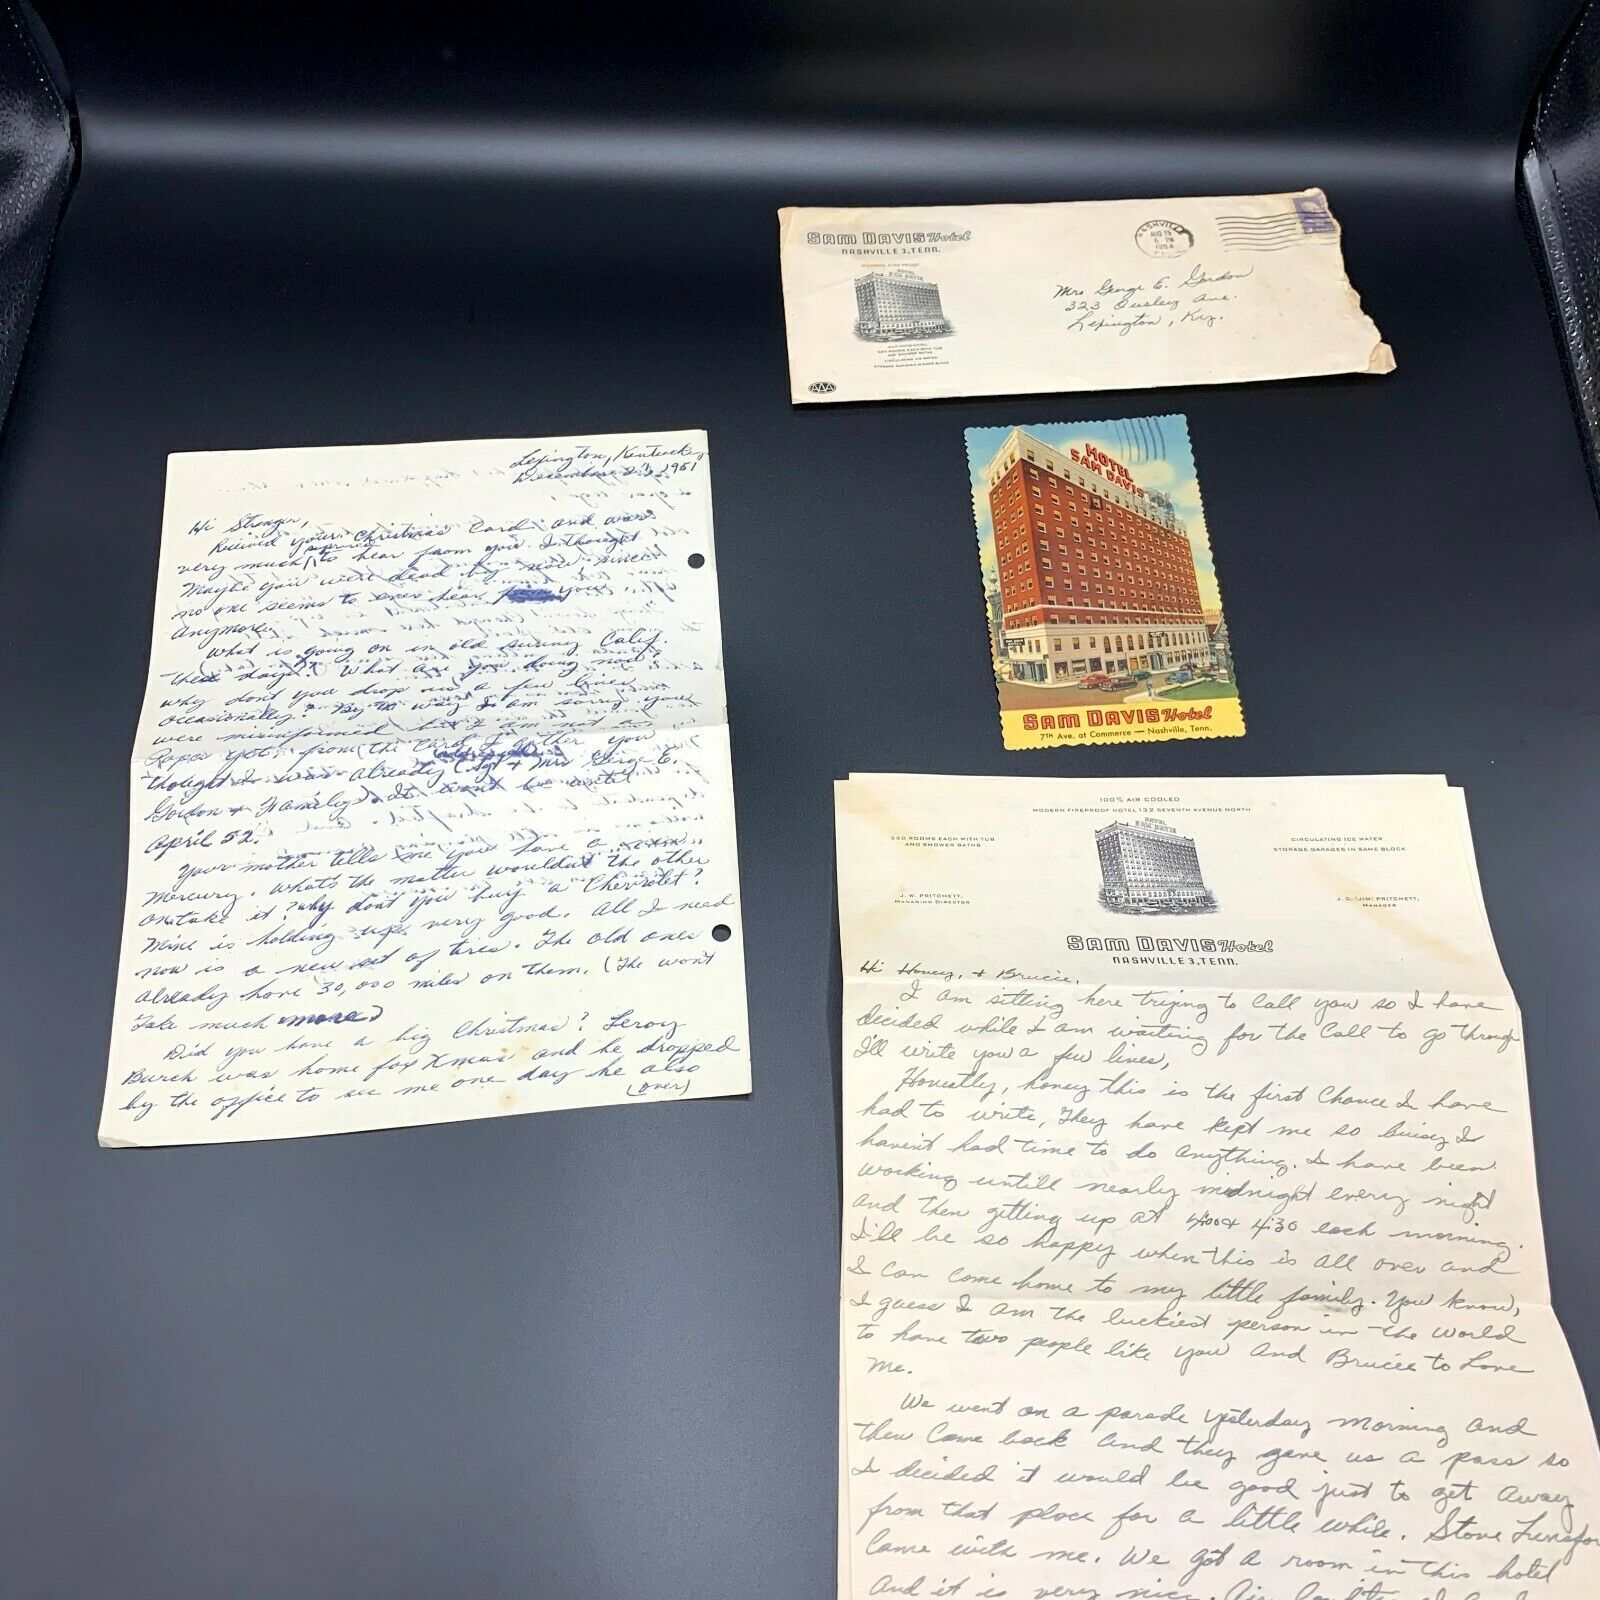 SAM DAVIS Hotel
NASHVILLE 3, TENN.
MODERN FIREPROOF
HOTEL
SAM DAVIS
250 ROOMS EACH WITH TUB
AND SHOWER BATHS
CIRCULATING ICE WATER
STORAGE GARAGES IN SAME BLOCK
AAA
NASHVILLE
AUG 15
6 PM
1954
Mrs George E. Gordon
323 Ousley Ave.
Lexington, Ky.
HOTEL
SAM DAVIS
SAM DAVIS Hotel
7TH Ave. at Commerce — Nashville, Tenn.
Lexington, Kentucky
December 27, 1951
Hi Stranger,
Received your Christmas Card and was
very much surprised to hear from you. I thought
Maybe you were dead by now since
no one seems to ever hear from you
Anymore.
What is going on in old sunny Calif.
these days? What are you doing now?
Why dont you drop us a few lines
occasionally? By the way I am sorry you
were misinformed but I am not a
Papa yet. from the Card I gather you
thought I was already (Sgt + Mrs George E.
Gordon + Family) It wont be until
April 52.
Your mother tells me you have a
Mercury. What's the matter wouldnt the other
one take it? Why dont you buy a Chevrolet?
Mine is holding up very good. All I need
now is a new set of tires. The old ones
Already have 30,000 miles on them. (The wont
Take much more)
Did you have a big Christmas? Leroy
Burch was home for Xmas and he dropped
by the office to see me one day he also
(over)
100% AIR COOLED
MODERN FIREPROOF HOTEL 132 SEVENTH AVENUE NORTH
250 ROOMS EACH WITH TUB
AND SHOWER BATHS
CIRCULATING ICE WATER
STORAGE GARAGES IN SAME BLOCK
HOTEL
SAM DAVIS
J. W. PRITCHETT,
MANAGING DIRECTOR
J. C. (JIM) PRITCHETT,
MANAGER
SAM DAVIS Hotel
NASHVILLE 3, TENN.
Hi Honey, + Brucie,
I am sitting here trying to Call you so I have
decided while I am waiting for the Call to go through
I'll write you a few lines,
Honestly, honey this is the first Chance I have
had to write, They have kept me so buisy I
haven't had time to do anything. I have been
working untill nearly midnight every night
and then getting up at 4:00 + 4:30 each morning.
I'll be so happy when this is all over and
I can come home to my little family. You know,
I guess I am the luckiest person in the World
to have two people like you and Brucie to Love
Me.
We went on a parade yesterday morning and
then Came back and they gave us a pass so
I decided it would be good just to get away
from that place for a little while. Steve
Came with me. We got a room in this hotel
And it is very nice.